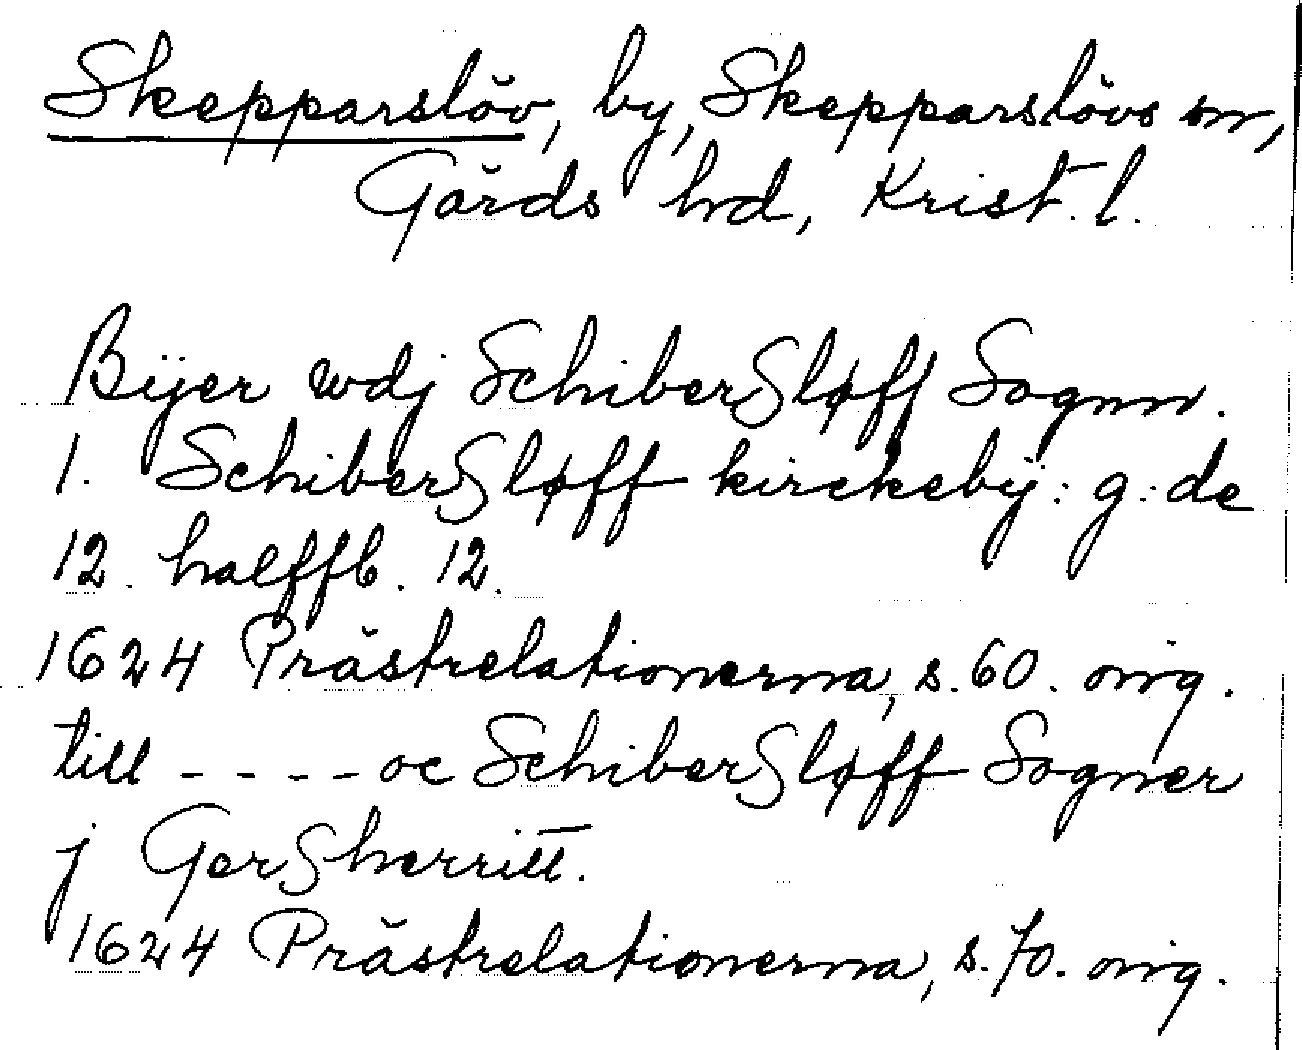 Skepparslöv, by, Skepparslövs sn,
Gärds hd, Krist. l.
Bijer wdj SchiberSløff Sognn.
1. SchiberSløff kirckebÿ: g: de
12. halffb. 12.
1624 Prästrelationerna, s. 60. orig.
till - - - - oc SchiberSløff Sogner
j GerSherritt.
1624 Prästrelationerna, s. 70. orig.